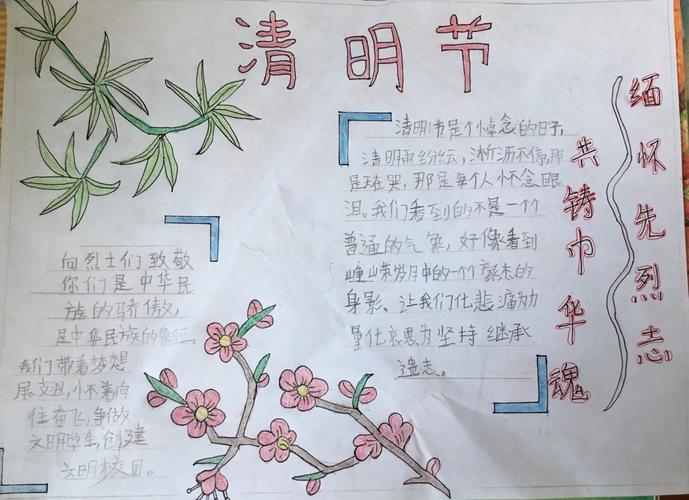 清明节
缅怀先烈志
共铸中华魂
清明节是个悼念的日子,
清明雨纷纷，淅沥不停，那
是在哭，那是每个人怀念眼
泪。我们看到的不是一个
普通的气象，好像看到
峥嵘岁月中的一个个
身影。让我们化悲痛为
量化哀思为坚持继承
遗志。
向烈士们致敬
你们是中华民
族的骄傲,
是中华民族的象征,
我们带着梦想
展支迅，怀着向
往奋飞，争做
文明学生，创建
文明校园。